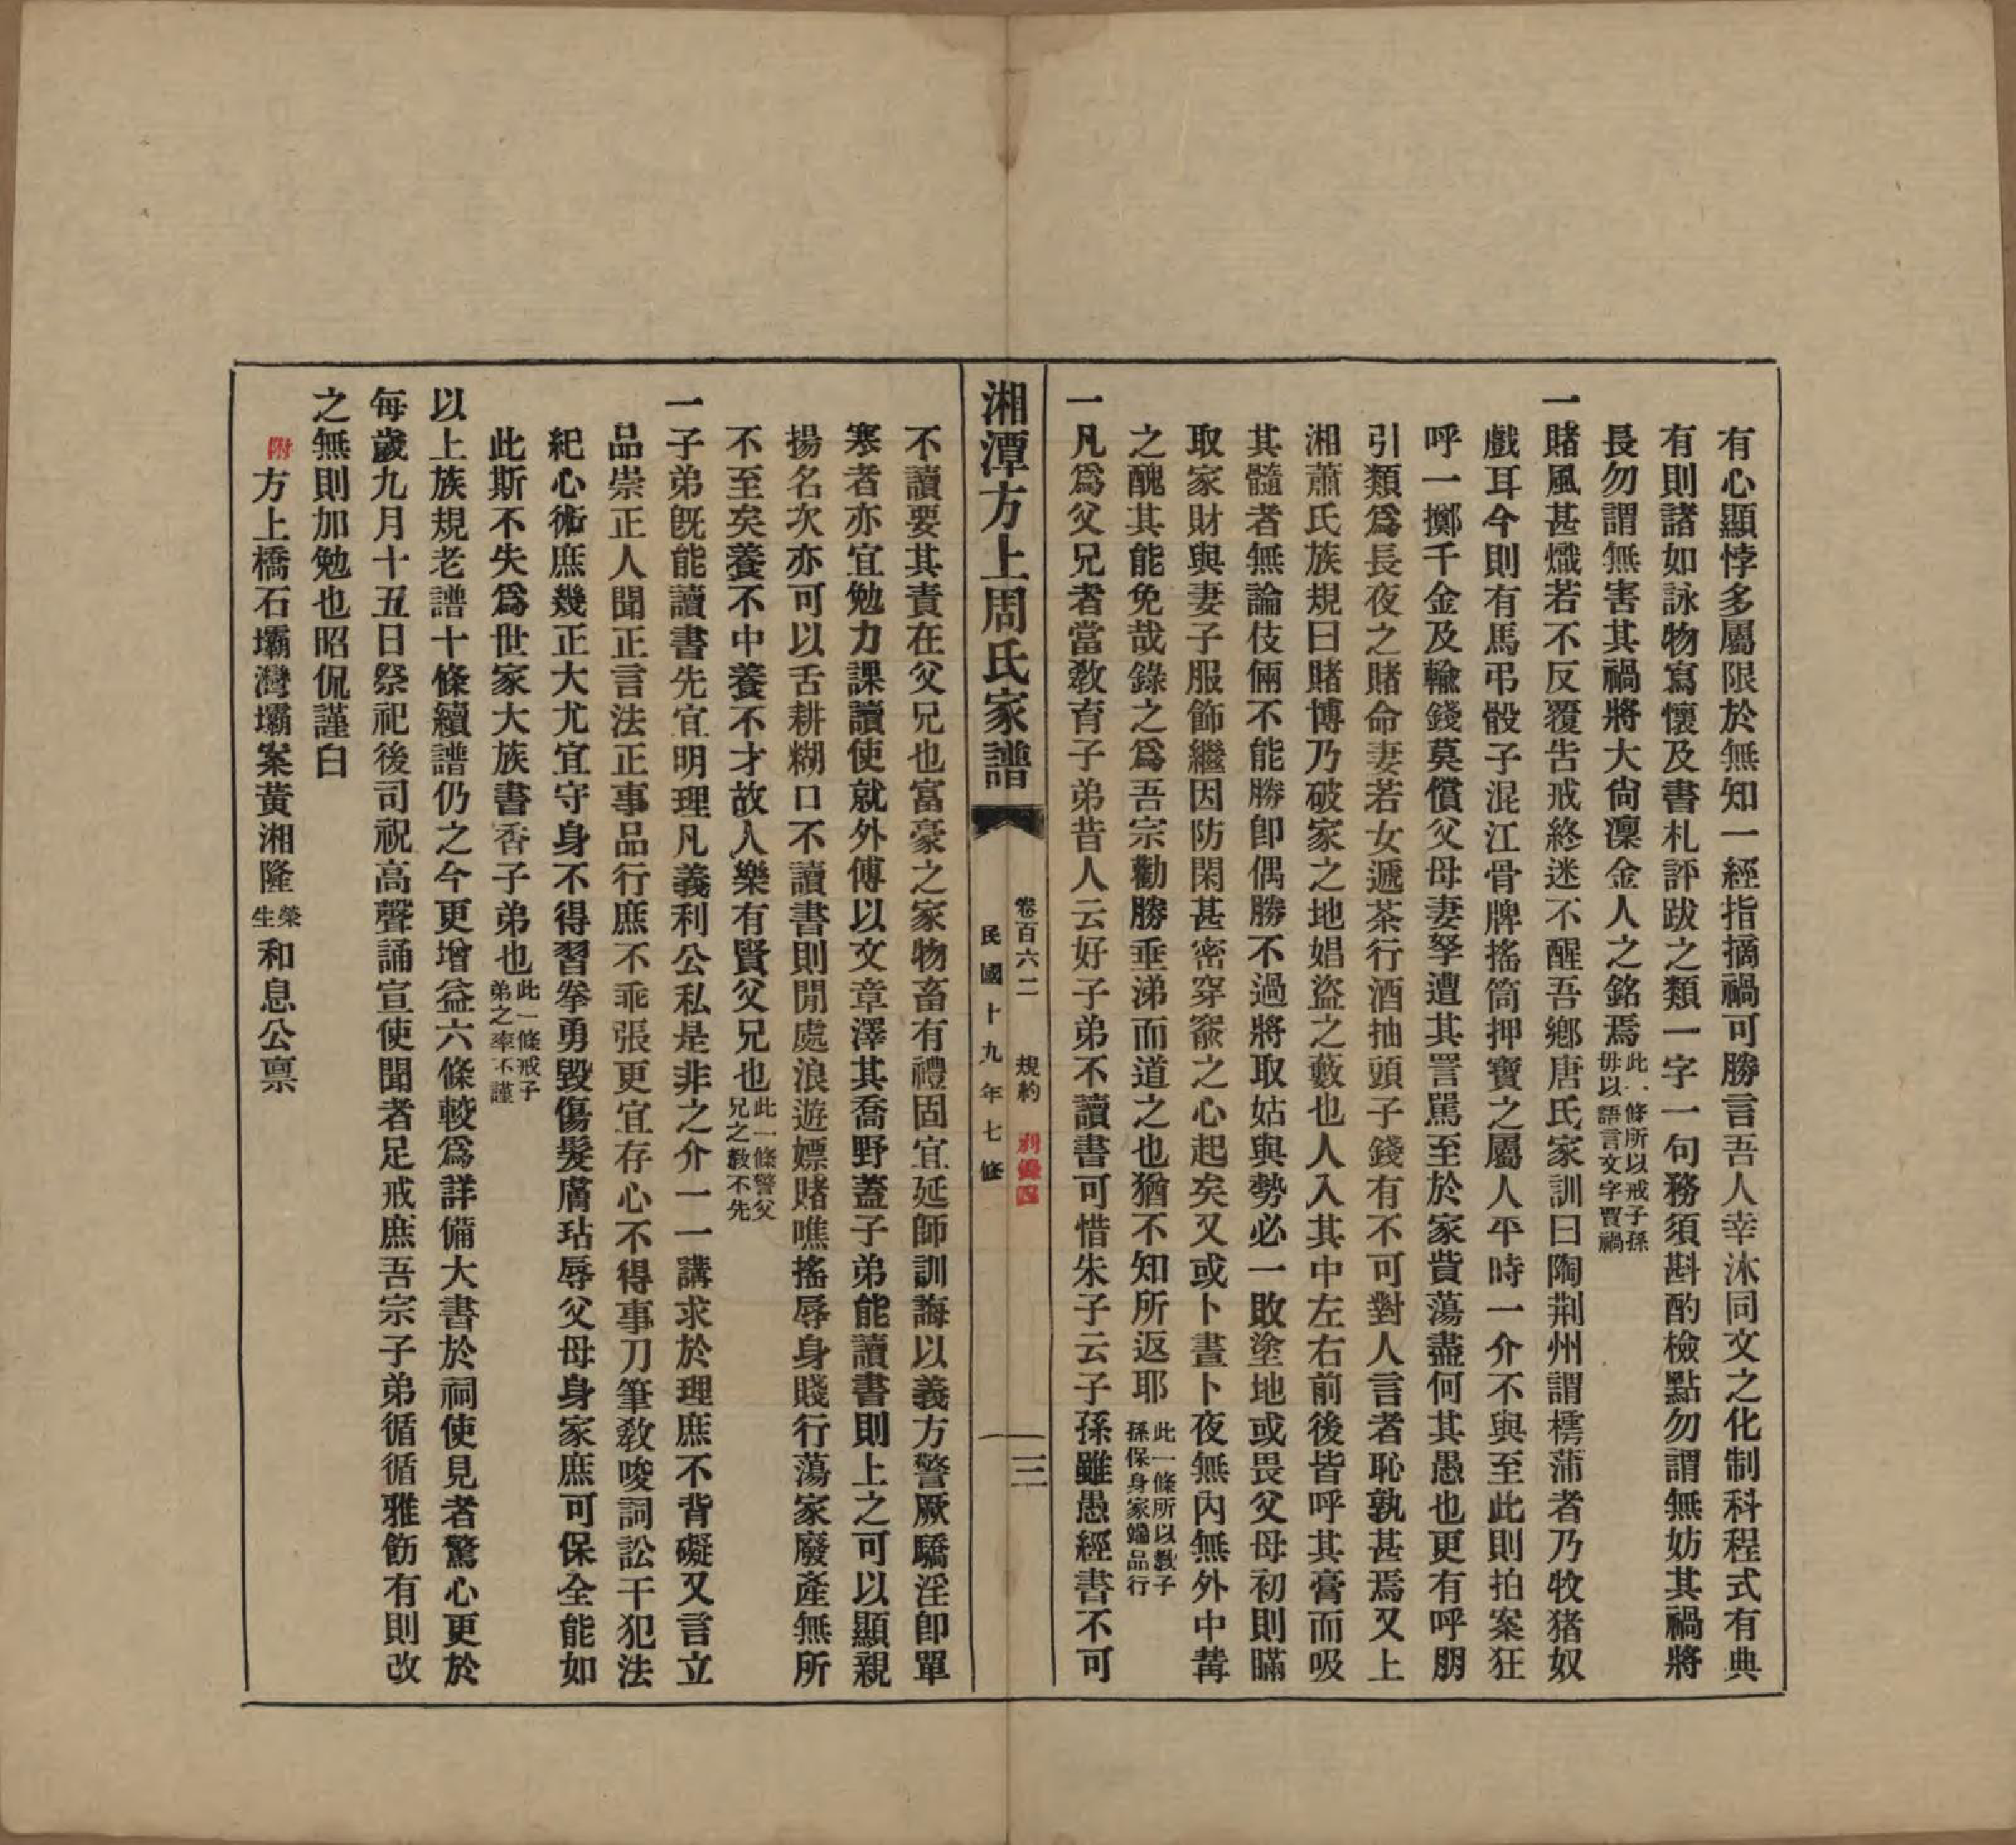 有心顯悖多屬限於無知一經指摘禍可勝言吾人幸沐同文之化制科程式有典
有則諸如詠物寫懷及書札評跋之類一字一句務須斟酌檢點勿謂無妨其禍將
長勿謂無害其禍將大尙凜金人之銘焉此一條所以戒子孫毋以語言文字賈禍
一賭風甚熾若不反覆吿戒終迷不醒吾鄕唐氏家訓曰陶荆州謂樗蒲者乃牧猪奴
戲耳今則有馬弔骰子混江骨牌搖筒押寶之屬人平時一介不與至此則拍案狂
呼一擲千金及輸錢莫償父母妻孥遭其詈駡至於家貲蕩盡何其愚也更有呼朋
引類爲長夜之賭命妻若女遞茶行酒抽頭子錢有不可對人言者恥孰甚焉又上
湘蕭氏族規曰賭博乃破家之地娼盜之藪也人入其中左右前後皆呼其膏而吸
其髓者無論伎倆不能勝卽偶勝不過將取姑與勢必一敗塗地或畏父母初則瞞
取家財與妻子服飾繼因防閑甚密穿窬之心起矣又或卜晝卜夜無內無外中冓
之醜其能免哉錄之爲吾宗勸勝垂涕而道之也猶不知所返耶此一條所以敎子孫保身家端品行
一凡爲父兄者當敎育子弟昔人云好子弟不讀書可惜朱子云子孫雖愚經書不可
湘潭方上周氏家譜
卷百六二 規約
民國十九年七修
三
不讀要其責在父兄也富豪之家物畜有禮固宜延師訓誨以義方警厥驕淫卽單
寒者亦宜勉力課讀使就外傅以文章澤其喬野蓋子弟能讀書則上之可以顯親
揚名次亦可以舌耕糊口不讀書則閒處浪遊嫖賭噍搖辱身賤行蕩家廢產無所
不至矣養不中養不才故人樂有賢父兄也此一條警父兄之敎不先
一子弟旣能讀書先宜明理凡義利公私是非之介一一講求於理庶不背礙又言立
品崇正人聞正言法正事品行庶不乖張更宜存心不得事刀筆敎唆詞訟干犯法
紀心術庶幾正大尤宜守身不得習拳勇毀傷髮膚玷辱父母身家庶可保全能如
此斯不失爲世家大族書香子弟也此一條戒子弟之率不謹
以上族規老譜十條續譜仍之今更增益六條較爲詳備大書於祠使見者驚心更於
每歲九月十五日祭祀後司祝高聲誦宣使聞者足戒庶吾宗子弟循循雅飭有則改
之無則加勉也昭侃謹白
附方上橋石壩灣壩案黃湘隆榮生和息公禀